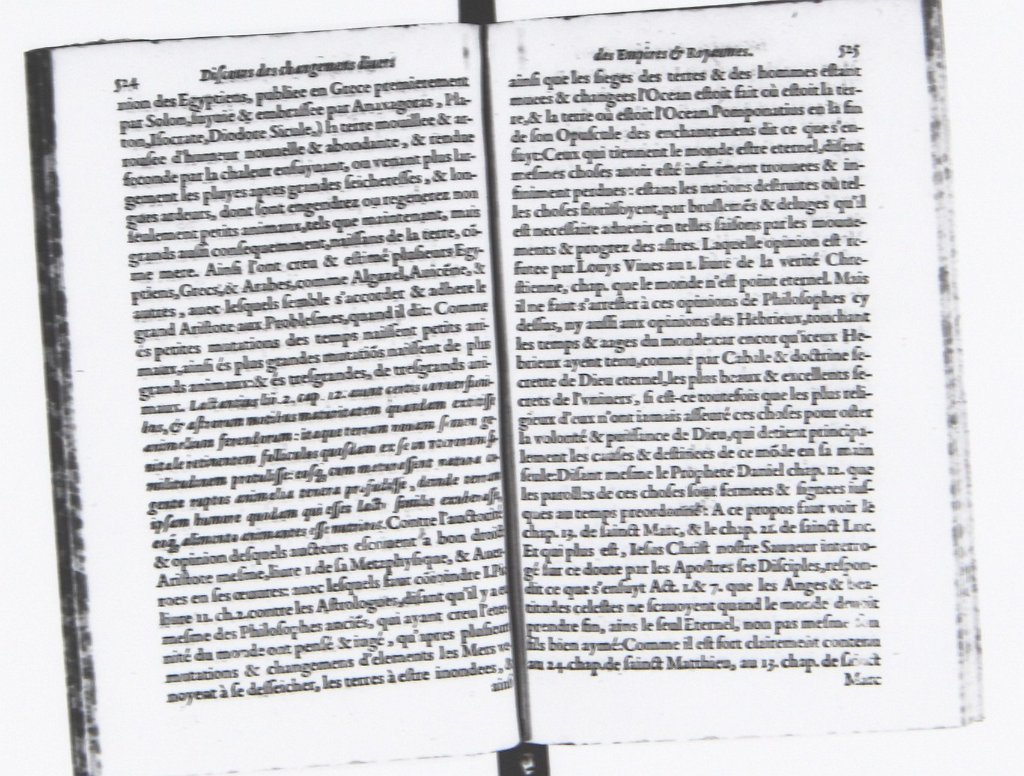 524 Discours des changemens divers
nion des Egyptiens, publiee en Grece premierement
par Solon, suyuie & embrassee par Anaxagoras, Pla-
ton, Isocrate, Diodore Sicule,) la terre mouillee & ar-
rousee d'humeur nouuelle & abondante, & rendue
foeconde par la chaleur ensuyuant, ou venant plus lar-
gement les pluyes apres grandes seicheresses, & lon-
gues ardeurs, dont sont engendrez ou regenerez non
seulement petits animaux, tels que maintenant, mais
grands aussi consequemment, naissans de la terre, cõ-
me mere. Ainsi l'ont creu & estimé plusieurs Egy-
ptiens, Grecs, & Arabes, comme Algazel, Auicéne, &
autres, auec lesquels semble s'accorder & adhere le
grand Aristote aux Problesmes, quand il dit: Comme
és petites mutations des temps naissent petits ani-
maux, ainsi és plus grandes mutatiõs naissent de plus
grands animaux: & és tresgrandes, de tresgrands ani-
maux. Lactantius li. 2. cap. 12. aiunt certis conuersioni-
bus, & astrorum motibus maturitatem quandam extitisse
animalium serendorum: itaque terram nouam semen ge-
nitale retinentem folliculos quosdam ex se in uterorum si-
militudinem protulisse: eosq́, cum maturassent natura co-
gente ruptos animalia tenera profudisse, deinde terram
ipsam humore quodam qui esset lacti similis exuberasse,
eoq́, alimento animantes esse nutritos. Contre l'auctorité
& opinion desquels aucteurs escriuent à bon droit
Aristote mesme, liure 1. de sa Metaphysque, & Auer-
roes en ses œuures: auec lesquels faut cõioindre I. Pic
liure 11. ch. 2. contre les Astrologues, disant qu'il y a eu
mesme des Philosophes anciés, qui ayant creu l'eter
nité du monde ont pensé & iugé, qu'apres plusieurs
mutations & changemens d'elements les Mers ve
noyent à se desseicher, les terres à estre inondees, &
ainsi
des Empires & Royaumes. 525
ainsi que les sieges des terres & des hommes estant
muees & changees l'Ocean estoit fait où estoit la ter-
re, & la terre où estoit l'Ocean. Pomponatius en la fin
de son Opuscule des enchantemens dit ce que s'en-
suyt: Ceux qui tiennent le monde estre eternel, disent
mesmes choses auoir esté infiniment trouuees & in-
finiment perdues: estans les nations destruites où tel-
les choses florissoyent, par bruslemés & deluges qu'il
est necessaire aduenir en telles saisons par les mouue-
ments & progrez des astres. Laquelle opinion est re-
futee par Louys Viues au 1. liure de la verité Chre-
stienne, chap. que le monde n'est point eternel. Mais
il ne faut s'arrester à ces opinions de Philosophes cy
dessus, ny aussi aux opinions des Hebrieux, touchant
les temps & aages du monde: car encor qu'iceux He-
brieux ayent tenu, comme par Cabale & doctrine se-
crette de Dieu eternel, les plus beaux & excellents se-
crets de l'vniuers, si est-ce toutefois que les plus reli-
gieux d'eux n'ont iamais asseuré ces choses pour oster
la volonté & puissance de Dieu, qui detient principa-
lement les causes & destinees de ce mõde en sa main
seule: Disant mesme le Prophete Daniel chap. 12. que
les parolles de ces choses sont fermees & signees ius-
ques au temps preordonné: A ce propos faut voir le
chap. 13. de sainct Marc, & le chap. 21. de sainct Luc.
Et qui plus est, Iesus Christ nostre Sauueur interro-
gé sur ce doute par les Apostres ses Disciples, respon-
dit ce que s'ensuyt Act. 1. & 7. que les Anges & bea-
titudes celestes ne scauoyent quand le monde deuoit
prendre fin, ains le seul Eternel, non pas mesme son
fils bien aymé: Comme il est fort clairement contenu
au 24. chap. de sainct Matthieu, au 13. chap. de sainct
Marc